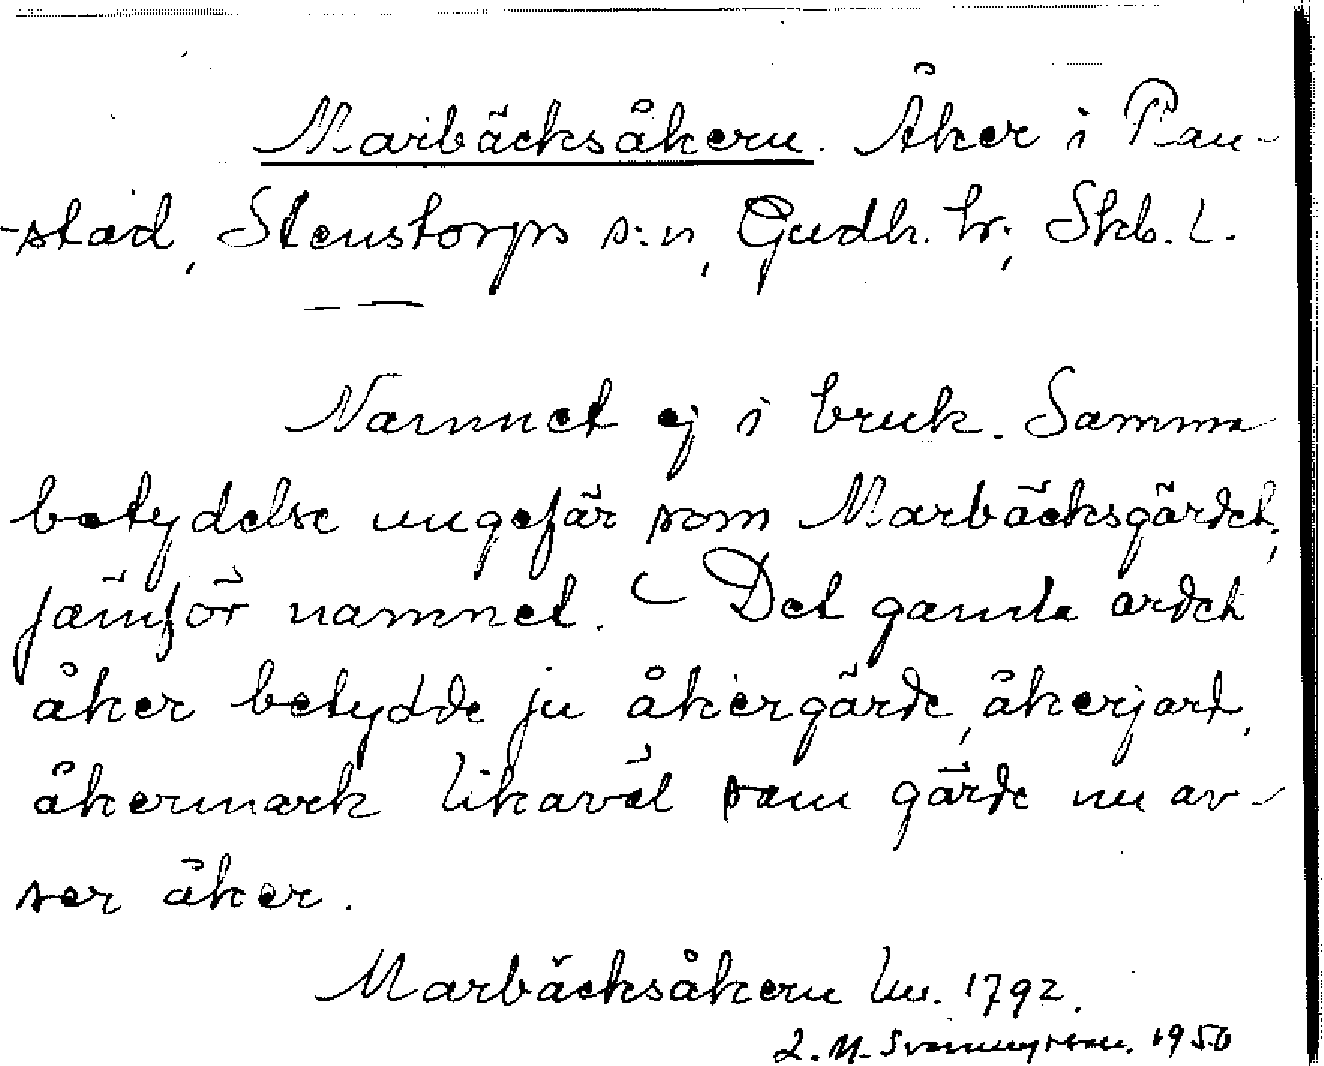 Marbäcksåkern. Åker i Ran-
-stad, Stenstorps s:n, Gudh. hr., Skb. l.
Namnet ej i bruk. Samma
betydelse ungefär som Marbäcksgärdet;
jämför namnet. Det gamla ordet
åker betydde ju åkergärde, åkerjord,
åkermark likaväl som gärde nu av-
ser åker.
Marbäcksåkern lm. 1792.
L. M. Svenungsson. 1950